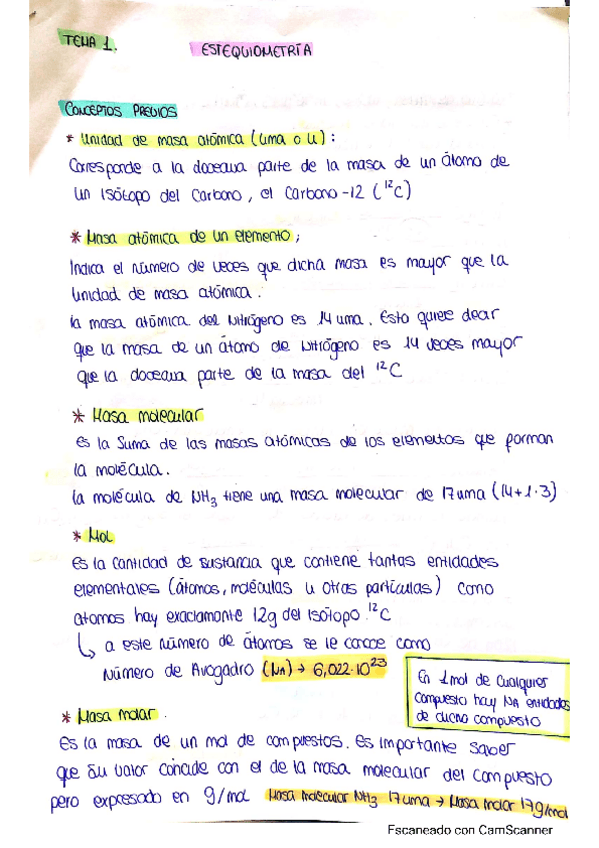 TEMA 1.
ESTEQUIOMETRÍA
CONCEPTOS PREVIOS
* Unidad de masa atómica (uma o u):
Corresponde a la doceava parte de la masa de un átomo de
un isótopo del Carbono, el Carbono-12 (¹²C)
* Masa atómica de un elemento;
Indica el número de veces que dicha masa es mayor que la
unidad de masa atómica.
la masa atómica del Nitrógeno es 14 uma. Esto quiere decir
que la masa de un átomo de Nitrógeno es 14 veces mayor
que la doceava parte de la masa del ¹²C
* Masa molecular
es la suma de las masas atómicas de los elementos que forman
la molécula.
la molécula de NH₃ tiene una masa molecular de 17uma (14+1·3)
* Mol
es la cantidad de sustancia que contiene tantas entidades
elementales (átomos, moléculas u otras partículas) como
atomos hay exactamente 12g del isótopo ¹²C
↳ a este número de átomos se le conoce como
Número de Avogadro (NA) → 6,022·10²³
En 1 mol de cualquier
compuesto hay NA entidades
de dicho compuesto
* Masa molar.
Es la masa de un mol de compuestos. Es importante saber
que su valor coincide con el de la masa molecular del compuesto
pero expresado en g/mol Masa molecular NH₃ 17uma → Masa molar 17g/mol
Escaneado con CamScanner